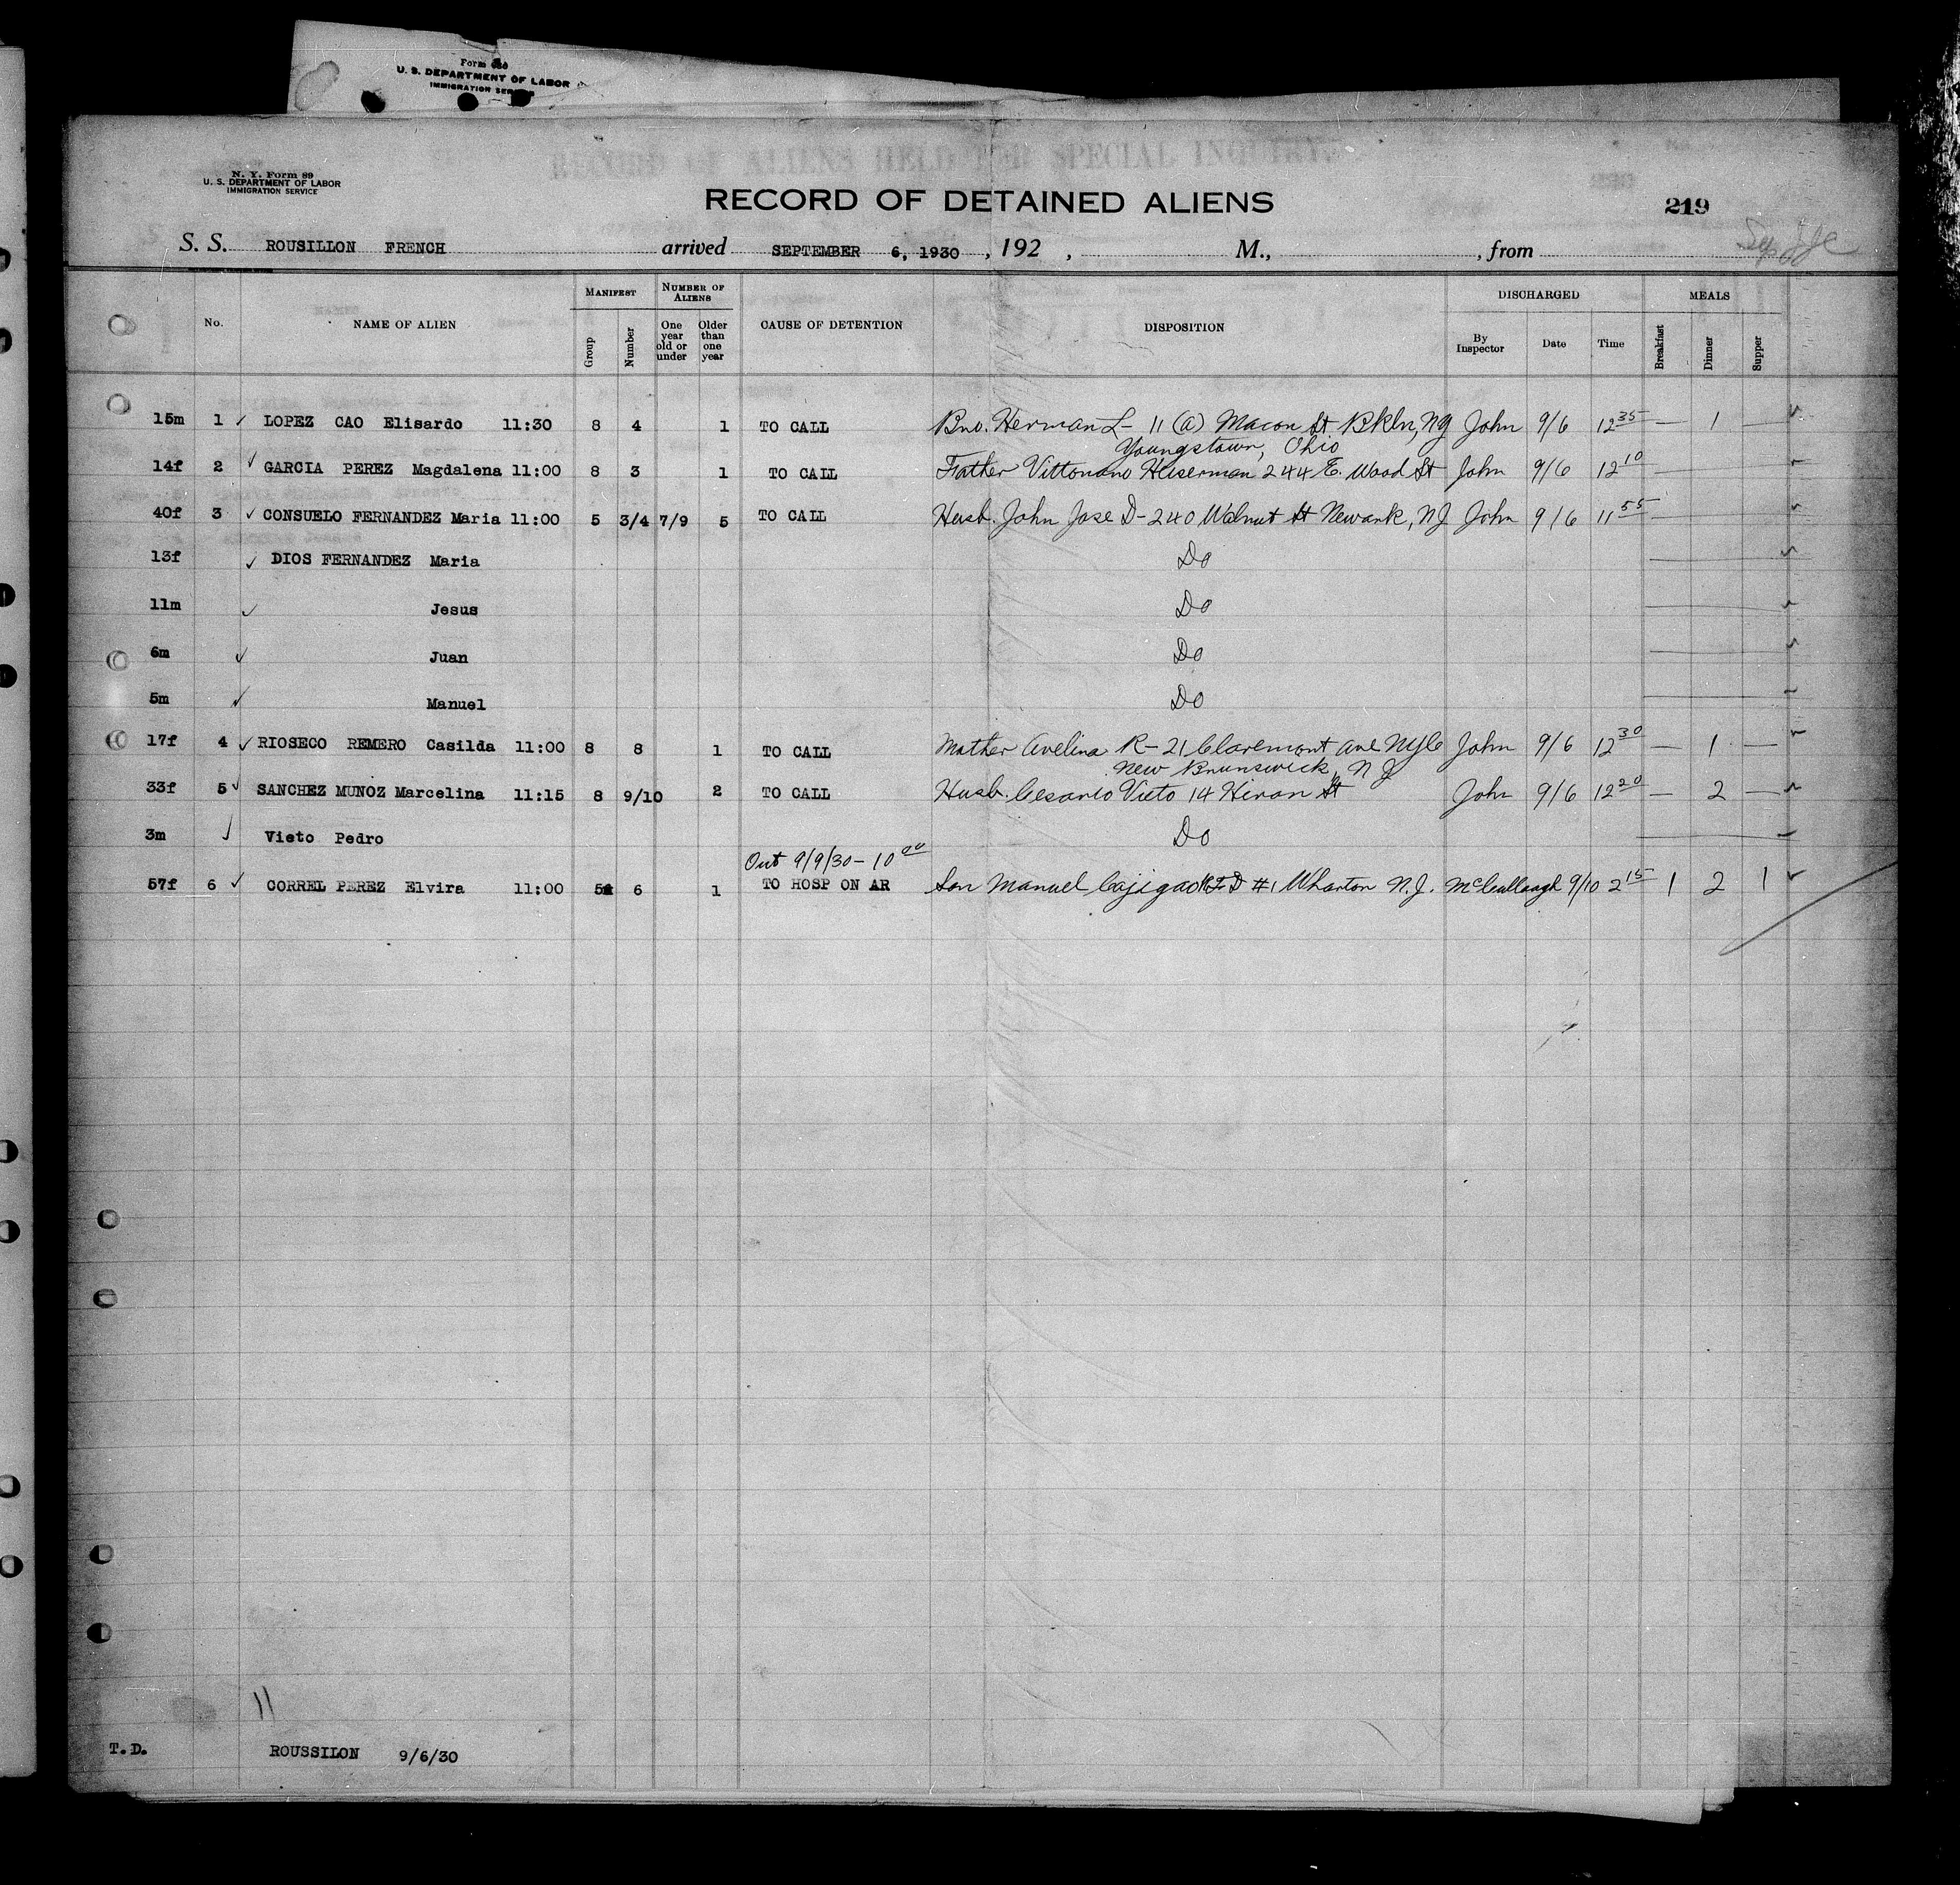 Form
U. S. DEPARTMENT OF LABOR
IMMIGRATION SERVICE
RECORD OF ALIENS HELD FOR SPECIAL INQUIRY
N. Y. Form 89
U. S. DEPARTMENT OF LABOR
IMMIGRATION SERVICE
RECORD OF DETAINED ALIENS
219
S. S. ROUSILLON FRENCH arrived SEPTEMBER 6, 1930 , 192 , M., , from
No. NAME OF ALIEN MANIFEST Group Number NUMBER OF ALIENS One year old or under Older than one year CAUSE OF DETENTION DISPOSITION DISCHARGED By Inspector Date Time MEALS Breakfast Dinner Supper
15m 1 ✓ LOPEZ CAO Elisardo 11:30 8 4 1 TO CALL Bro. Herman L- 11 (a) Macon St Bkln, NY John 9/6 12 35 — 1 —
Youngstown, Ohio
14f 2 ✓ GARCIA PEREZ Magdalena 11:00 8 3 1 TO CALL Father Heiserman 244 E. Wood St John 9/6 12 10
40f 3 ✓ CONSUELO FERNANDEZ Maria 11:00 5 3/4 7/9 5 TO CALL Husb. John Jose D- 240 Walnut St Newark, NJ John 9/6 11 55
13f ✓ DIOS FERNANDEZ Maria Do
11m ✓ Jesus Do
6m ✓ Juan Do
5m ✓ Manuel Do
17f 4 ✓ RIOSECO REMERO Casilda 11:00 8 8 1 TO CALL Mother Avelina R- 21 Claremont Ave NYC John 9/6 12 30 — 1 —
New Brunswick, NJ
33f 5 ✓ SANCHEZ MUNOZ Marcelina 11:15 8 9/10 2 TO CALL Husb. Cesareo Vieto 14 Hiran St John 9/6 12 20 — 2 —
3m ✓ Vieto Pedro Do
Out 9/9/30 - 10 00
57f 6 ✓ CORREL PEREZ Elvira 11:00 5 6 1 TO HOSP ON AR Son Manuel Cajigao RFD #1 Wharton N.J. McCullaugh 9/10 2 15 1 2 1
11
T.D. ROUSSILON 9/6/30